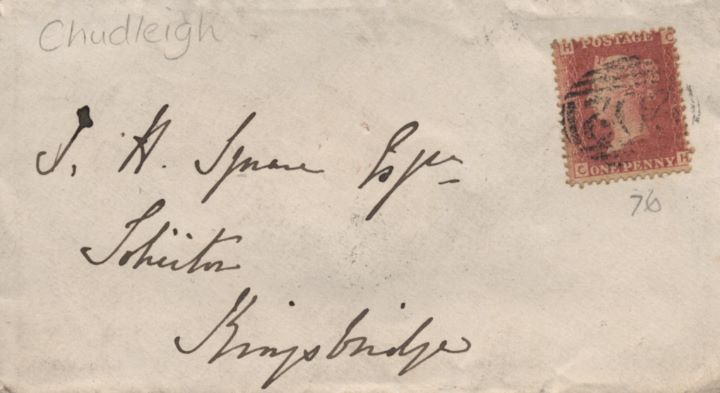 Chudleigh
H POSTAGE C
C ONE PENNY H
76
J. H. Square Esqre
Solicitor
Kingsbridge